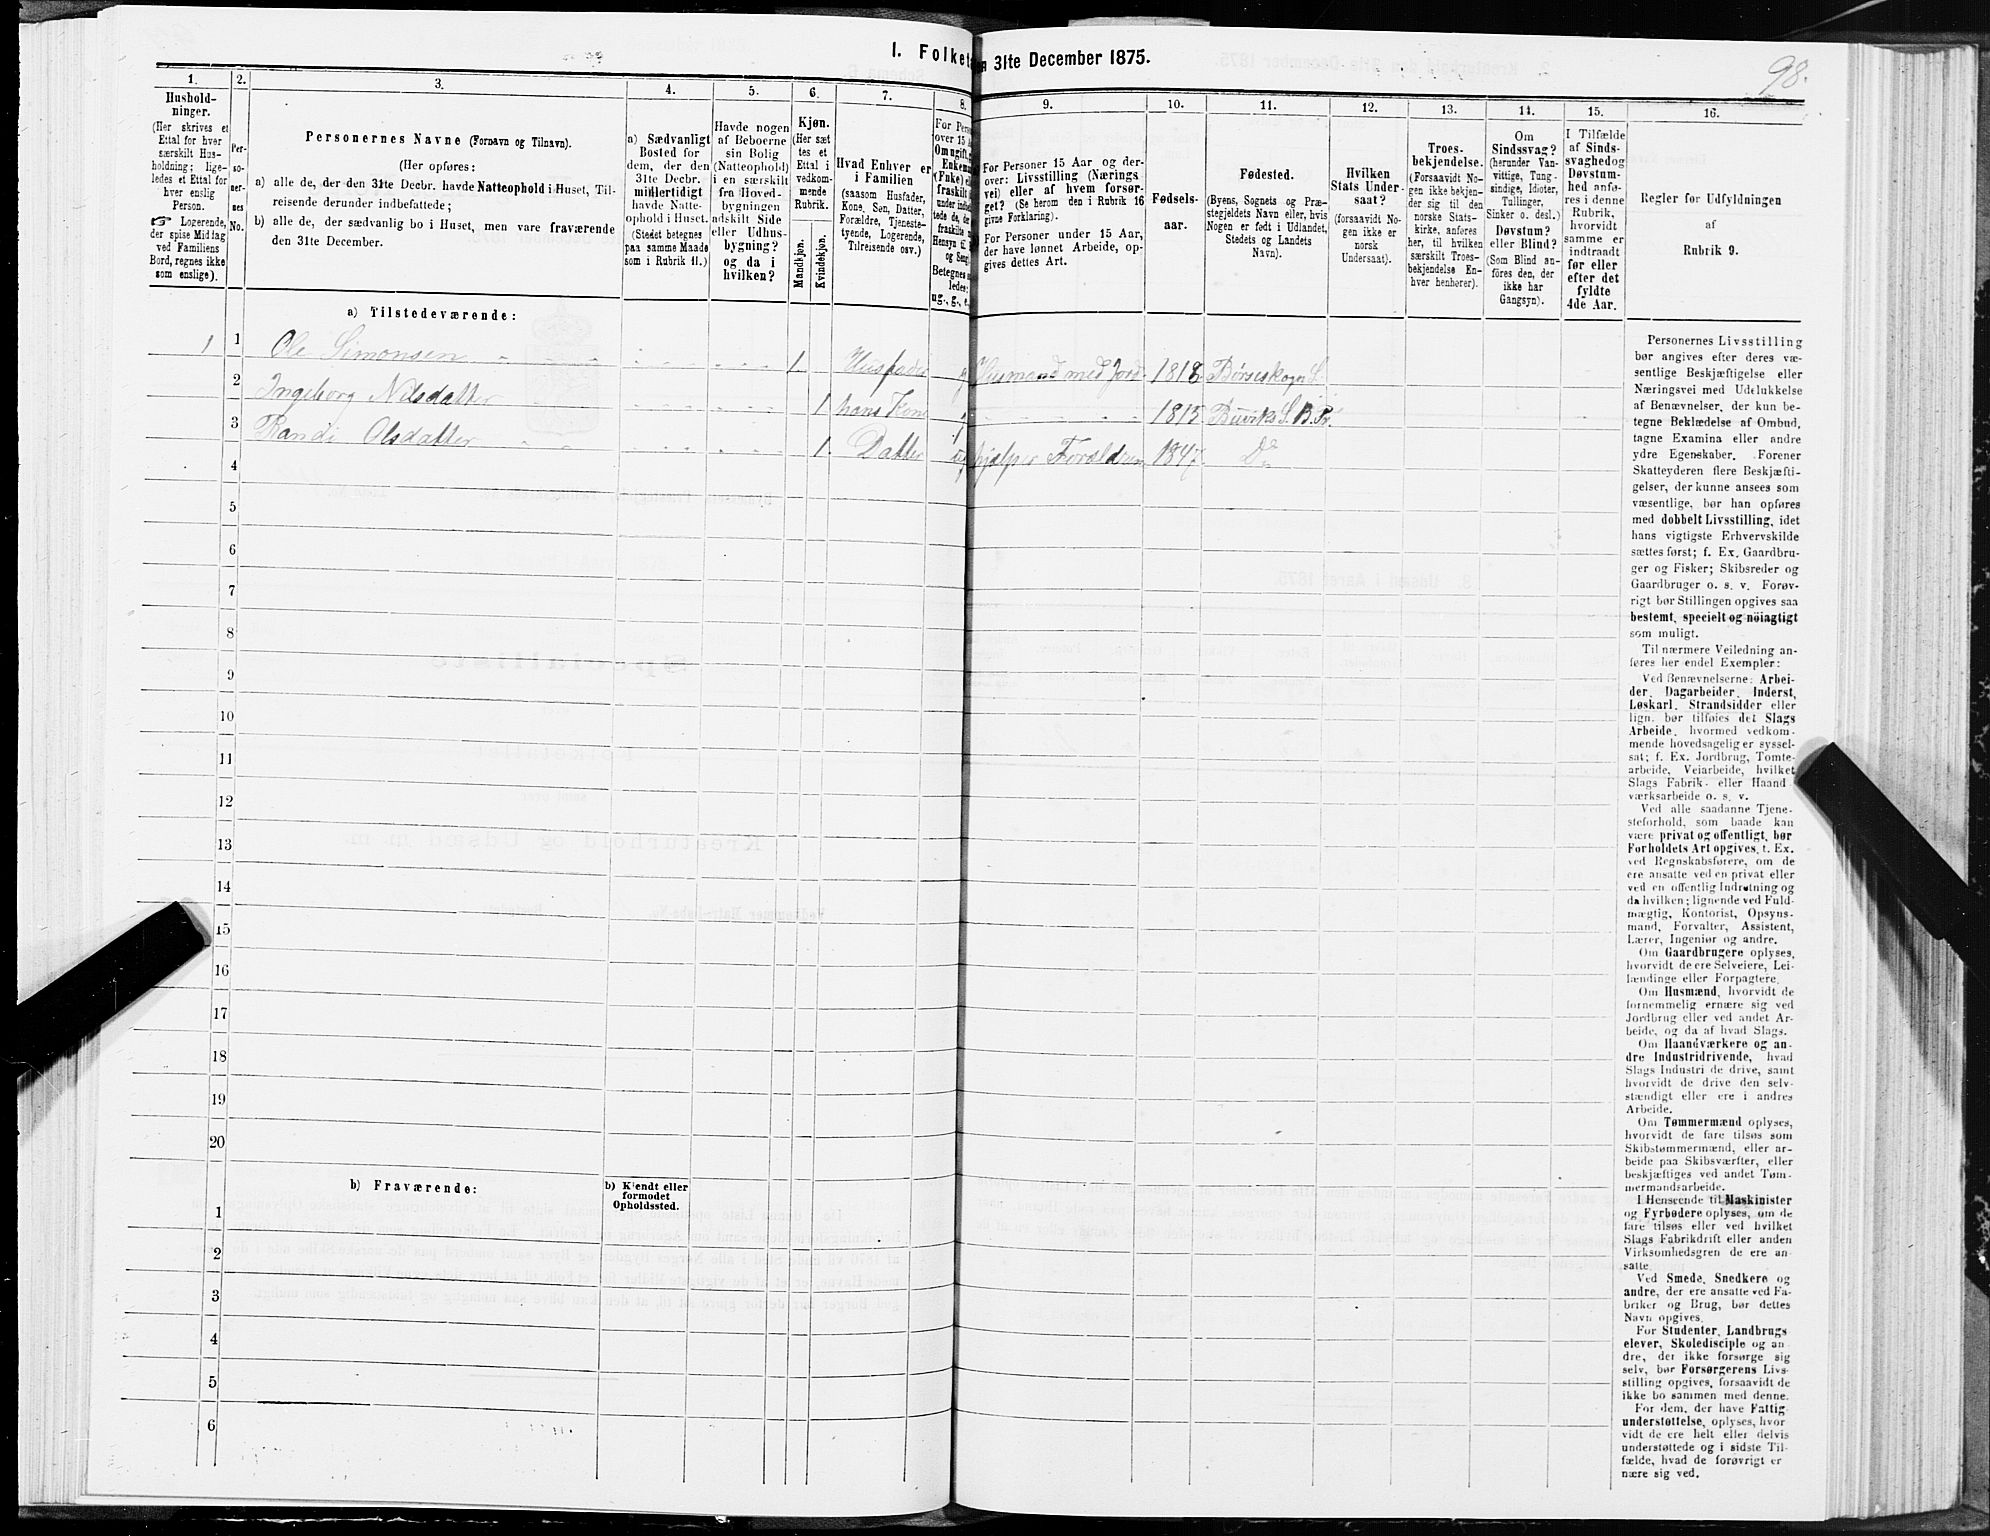 I. Folket
n 31te December 1875.
98.
1.
2.
3.
4.
5.
6.
7.
8.
9.
10.
11.
12.
13.
14.
15.
16.
Hushold-
ninger.
(Her skrives et
Ettal for hver
særskilt Hus-
holdning; lige-
ledes et Ettal for
hver enslig
Person.
☞ Logerende,
der spise Middag
ved Familiens
Bord, regnes ikke
som enslige).
Per-
so-
ner-
nes
No.
Personernes Navne (Fornavn og Tilnavn).
(Her opføres:
a) alle de, der den 31te Decbr. havde Natteophold i Huset, Til-
reisende derunder indbefattede;
b) alle de, der sædvanlig bo i Huset, men vare fraværende
den 31te December.
a) Sædvanligt
Bosted for
dem, der den
31te Decbr.
midlertidigt
havde Natte-
ophold i Huset.
(Stedet betegnes
paa samme Maade
som i Rubrik 11.)
Havde nogen
af Beboerne
sin Bolig
(Natteophold)
i en særskilt
fra Hoved-
bygningen
adskilt Side
eller Udhus-
bygning?
og da i
hvilken?
Kjøn.
(Her sæt
tes et
Ettal i
vedkom-
mende
Rubrik.
Mandkjøn.
Kvindekjøn.
Hvad Enhver er
i Familien
(saasom Husfader,
Kone, Søn, Datter,
Forældre, Tjeneste-
tyende, Logerende,
Tilreisende osv.)
For Pers
over 15 A
Om ugift, g
Enkem
(Fake) el
fraskilt
Hensyn til
og Seng
Betegnes s
ledes:
ug., g., e.,
For Personer 15 Aar og der-
over: Livsstilling (Nærings
vei) eller af hvem forsør-
get? (Se herom den i Rubrik 16
givne Forklaring).
For Personer under 15 Aar,
der have lønnet Arbeide, op-
gives dettes Art.
Fødsels-
aar.
Fødested.
(Byens, Sognets og Præ-
stegjeldets Navn eller, hvis
Nogen er født i Udlandet,
Stedets og Landets
Navn).
Hvilken
Stats Under-
saat?
(forsaavidt No-
gen ikke er
norsk
Undersaat).
Troes-
bekjendelse.
(Forsaavidt No-
gen ikke bekjen-
der sig til den
norske Stats-
kirke, anføres
her, til hvilken
særskilt Troes-
bekjendelse En-
hver henhører).
Om
Sindssvag?
(herunder Van-
vittige, Tung-
sindige, Idioter,
Tullinger,
Sinker o. desl.)
Døvstum?
eller Blind?
(Som Blind an-
føres den, der
ikke har
Gangsyn).
I Tilfælde
af Sinds-
svaghed og
Døvstum-
hed anfø-
res i denne
Rubrik,
hvorvidt
samme er
indtraadt
før eller
efter det
fyldte
4de Aar.
Regler for Udfyldningen
af
Rubrik 9.
a) Tilstedeværende:
1 1 Ole Simonsen 1 Husfader g Husmand med Jord 1818 Børseskogn S.
2 Ingeborg Nilsdatter 1 hans Kone g 1815 Buviks S. B. Pr.
3 Randi Olsdatter 1 Datter ug hjælper Forældrene 1847 Do
4
5
6
7
8
9
10
11
12
13
14
15
16
17
18
19
20
b) Fraværende:
b) Kjendt eller
formodet
Opholdssted.
1
2
3
4
5
6
Personernes Livsstilling
bør angives efter deres væ-
sentlige Beskjæftigelse eller
Næringsvei med Udelukkelse
af Benævnelser, der kun be-
tegne Beklædelse af Ombud,
tagne Examina eller andre
ydre Egenskaber. Forener
Skatteyderen flere Beskjæfti-
gelser, der kunne ansees som
væsentlige, bør han opføres
med dobbelt Livsstilling, idet
hans vigtigste Erhvervskilde
sættes først; f. Ex. Gaardbru-
ger og Fisker; Skibsreder og
Gaardbruger o. s. v. Forøv-
rigt bør Stillingen opgives saa
bestemt, specielt og nöiagtigt
som muligt.
Til nærmere Veiledning an-
føres her endel Exempler:
Ved Benævnelserne: Arbei-
der, Dagarbeider, Inderst,
Løskarl, Strandsidder eller
lign. bør tilføies det Slags
Arbeide, hvormed vedkom-
mende hovedsagelig er syssel-
sat; f. Ex. Jordbrug, Tomte-
arbeide, Veiarbeide, hvilket
Slags Fabrik- eller Haand
værksarbeide o. s. v.
Ved alle saadanne Tjene-
steforhold, som baade kan
være privat og offentligt, bør
Forholdets Art opgives, f. Ex.
ved Regnskabsførere, om de
ere ansatte ved en privat eller
ved en offentlig Indretning og
da hvilken; lignende ved Fuld-
mægtig, Kontorist, Opsyns-
mand, Forvalter, Assistent,
Lærer, Ingeniør og andre.
Om Gaardbrugere oplyses,
hvorvidt de ere Selveiere, Lei-
lændinge eller Forpagtere.
Om Husmænd, hvorvidt de
fornemmelig ernære sig ved
Jordbrug eller ved andet Ar-
beide, og da af hvad Slags.
Om Haandværkere og an-
dre Industridrivende, hvad
Slags Industri de drive, samt
hvorvidt de drive den selv-
stændigt eller ere i andres
Arbeide.
Om Tømmermænd oplyses,
hvorvidt de fare tilsøs som
Skibstømmermænd, eller ar-
beide paa Skibsværfter, eller
beskjæftiges ved andet Tøm-
mermandsarbeide.
I Henseende til Maskinister
og Fyrbødere oplyses, om de
fare tilsøs eller ved hvilket
Slags Fabrikdrift eller anden
Virksomhedsgren de ere an-
satte.
Ved Smede, Snedkere og
andre, der ere ansatte ved Fa-
briker og Brug, bør dettes
Navn opgives.
For Studenter, Landbrugs
elever, Skoledisciple og an
dre, der ikke forsørge sig
selv, bør Forsørgerens Livs-
stilling opgives, forsaavidt de
ikke bo sammen med denne.
For dem, der have Fattig
understøttelse, oplyses, hvor
vidt de ere helt eller delvis
understøttede og i sidste Til-
fælde, hvad de forøvrigt er
nære sig ved.